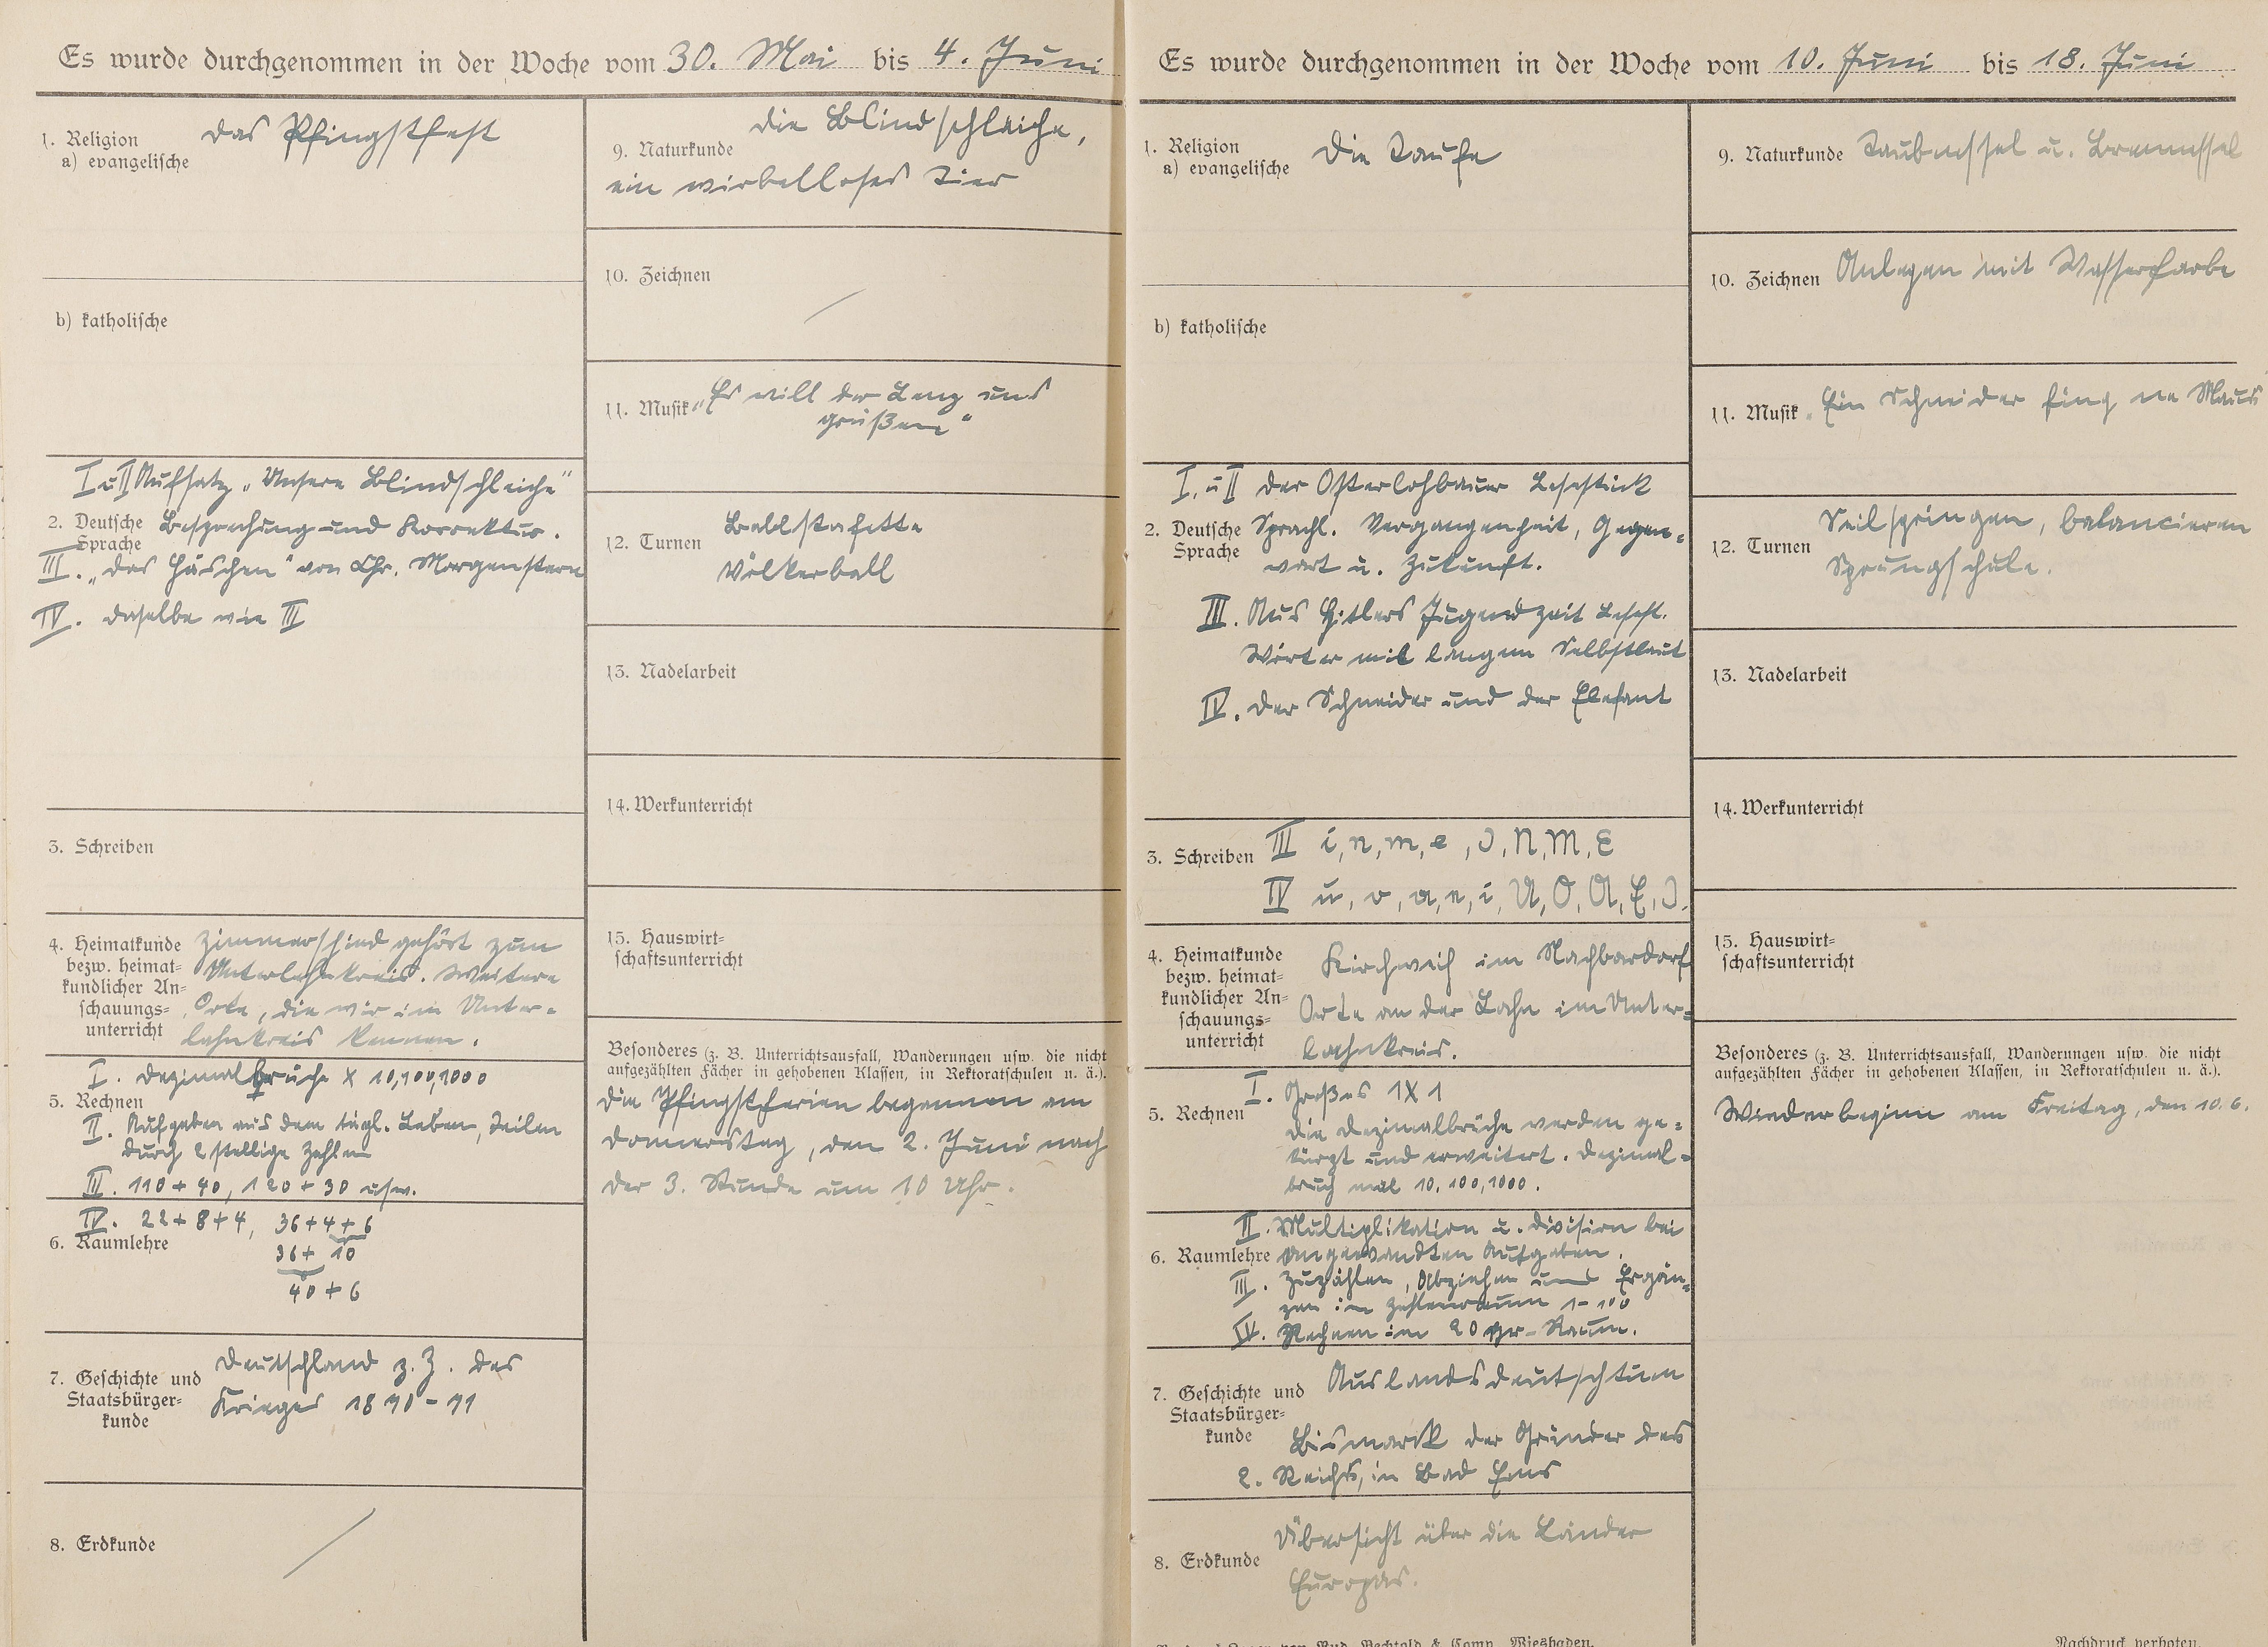 Es wurde durchgenommen in der Woche vom 30. Mai bis 4. Juni
1. Religion
a) evangelische
Das Pfingstfest
b) katholische
I u II Aufsatz „Unsere Blindschleiche“
2. Deutsche Sprache
Besprechung und Korrektur.
III. „Das Häschen“ von Chr. Morgenstern
IV. daselbe wie III
3. Schreiben
4. Heimatkunde
bezw. heimat=
kundlicher An=
schauungs=
unterricht
Zimmerschied gehört zum
Unterlahnkreis. Weitere
Orte, die wir im Unter-
lahnkreis kennen.
5. Rechnen
I. Dezimalbrüche X 10,100,1000
II. Aufgaben aus dem tägl. Leben, Teilen
durch 2 stellige Zahlen
III. 110 + 40, 120 + 30 usw.
6. Raumlehre
IV. 22 + 8 + 4, 36 + 4 + 6
36 + 10
40 + 6
7. Geschichte und
Staatsbürger=
kunde
Deutschland z. Z. des
Krieges 1870 - 71
8. Erdkunde
9. Naturkunde
Die Blindschleiche,
ein wirbelloses Tier
10. Zeichnen
11. Musik
„Es will der Lenz uns
grüßen“
12. Turnen
Ballstafette
Völkerball
13. Nadelarbeit
14. Werkunterricht
15. Hauswirt=
schaftsunterricht
Besonderes (z. B. Unterrichtsausfall, Wanderungen usw. die nicht
aufgezählten Fächer in gehobenen Klassen, in Rektoratschulen u. ä.).
Die Pfingstferien begannen am
Donnerstag, den 2. Juni nach
der 3. Stunde um 10 Uhr.
Es wurde durchgenommen in der Woche vom 10. Juni bis 18. Juni
1. Religion
a) evangelische
Die Taufe
b) katholische
I. u II Der Osterlohbauer Lesestück
2. Deutsche Sprache
Sprachl. Vergangenheit, Gegen=
wart u. Zukunft.
III. Aus Hitlers Jugendzeit Lesest.
Wörter mit langem Selbstlaut
IV. Der Schneider und der Elefant
3. Schreiben
III i, n, m, e, J, N, M, E
IV u, o, a, e, i, U, O, A, E, J.
4. Heimatkunde
bezw. heimat=
kundlicher An=
schauungs=
unterricht
Kirchweih im Nachbardorf
Orte an der Lahn im Unter=
lahnkreis.
5. Rechnen
I. Großes 1 X 1
Die Dezimalbrüche werden ge=
kürzt und erweitert. Dezimal=
bruch mal 10, 100, 1000.
6. Raumlehre
II. Multiplikation u. Division bei
angewandten Aufgaben.
III. Zuzählen, Abziehen und Ergän=
zen im Zahlenraum 1 - 100
IV. Rechnen im 20ger-Raum.
7. Geschichte und
Staatsbürger=
kunde
Auslandsdeutschtum
Bismarck der Gründer des
2. Reichs, in Bad Ems
8. Erdkunde
Übersicht über die Länder
Europas.
9. Naturkunde
Taubnessel u. Brennessel
10. Zeichnen
Anlegen mit Wasserfarbe
11. Musik
„Ein Schneider fing ne Maus“
12. Turnen
Seilspringen, balancieren
Sprungschule.
13. Nadelarbeit
14. Werkunterricht
15. Hauswirt=
schaftsunterricht
Besonderes (z. B. Unterrichtsausfall, Wanderungen usw. die nicht
aufgezählten Fächer in gehobenen Klassen, in Rektoratschulen u. ä.).
Wiederbeginn am Freitag, den 10. 6.
von Rud. Bechtold & Comp., Wiesbaden.
Nachdruck verboten.